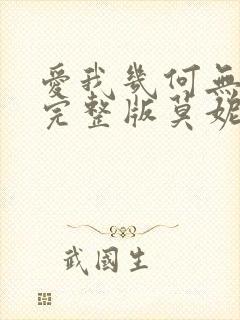 愛我幾何無
完整版莫妮
武國生